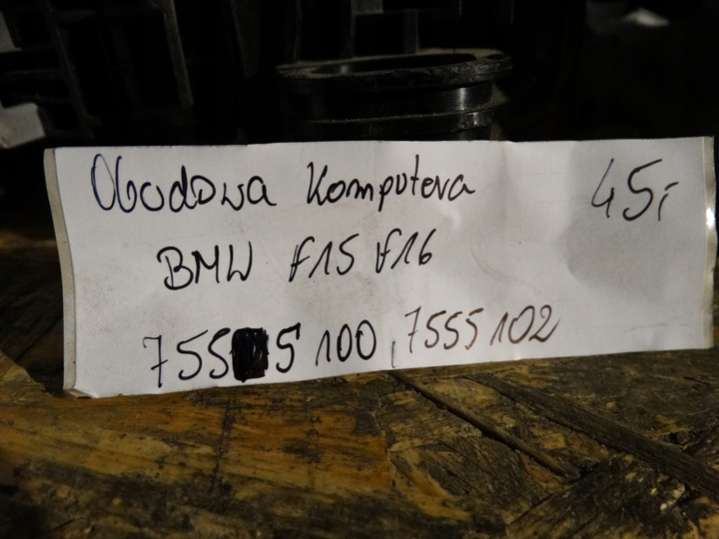 Obudowa Komputera 45,-
BMW F15 F16
7555 100, 7555 102